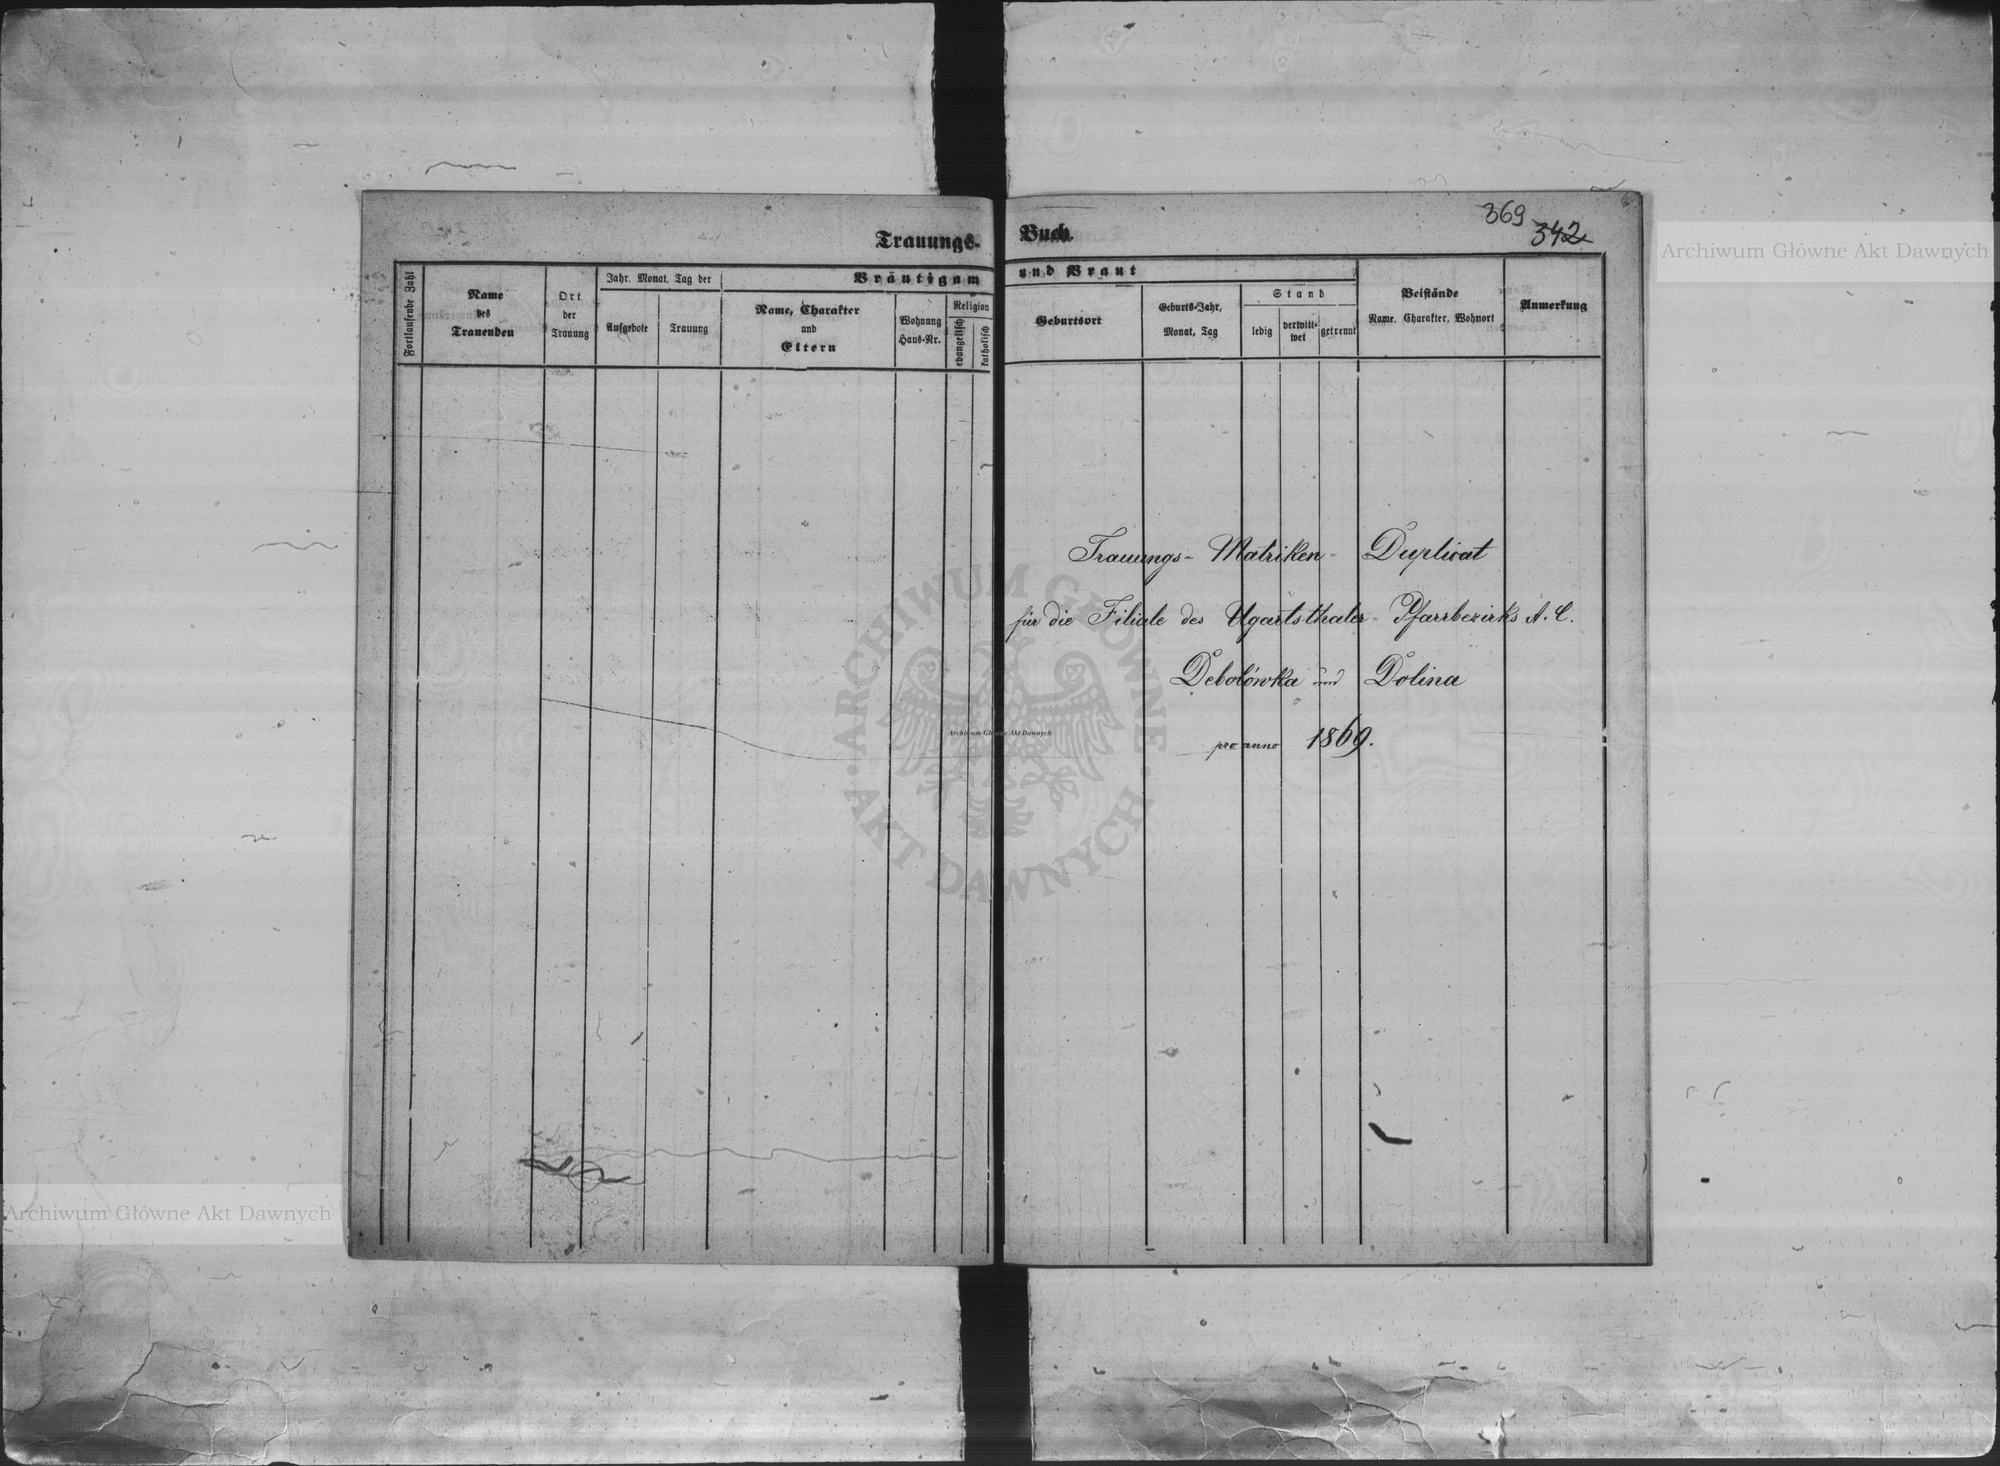 369
342
Trauungs-Buch.
Fortlaufende Zahl
Name
des
Trauenden
Ort
der
Trauung
Jahr. Monat. Tag der
Aufgebote
Trauung
Bräutigam und Braut
Name, Charakter
und
Eltern
Wohnung
Haus-Nr.
Religion
evangelisch
katholisch
Geburtsort
Geburts-Jahr,
Monat, Tag
Stand
ledig
verwitt-
wet
getrennt
Beistände
Name. Charakter, Wohnort
Anmerkung
Trauungs- Matriken- Duplicat
für die Filiale des Ugartsthaler Pfarrbezirks A. C.
Debolówka und Dolina
pro anno 1869.
Archiwum Główne Akt Dawnych
ARCHIWUM GŁÓWNE
AKT DAWNYCH
Archiwum Główne Akt Dawnych
Archiwum Główne Akt Dawnych